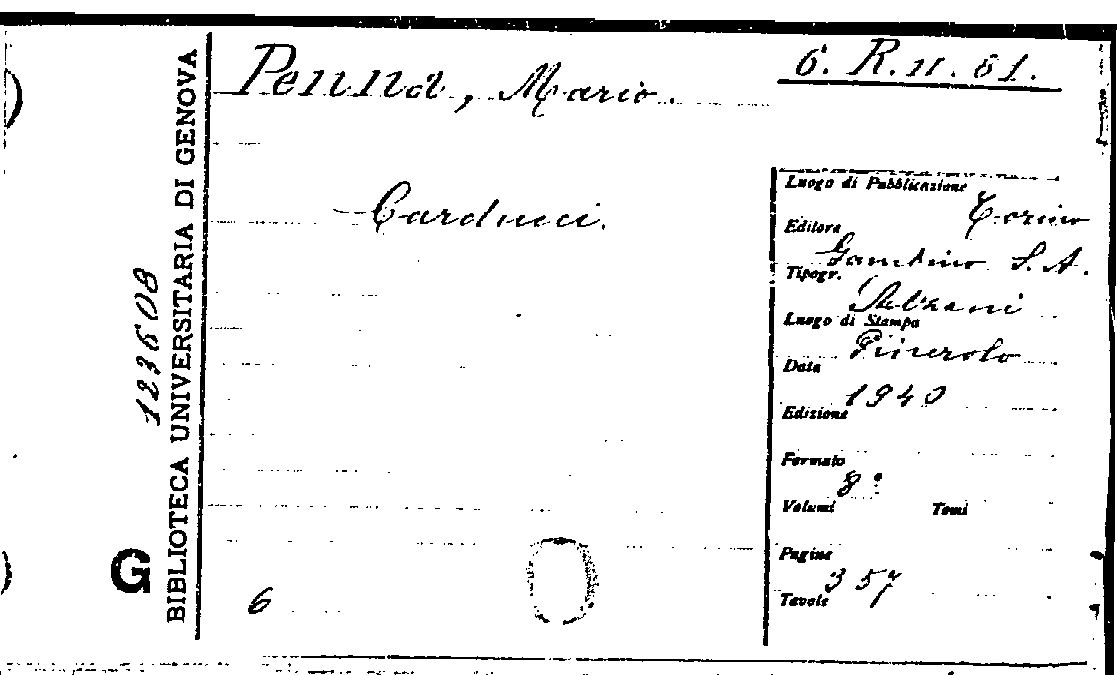 Penna, Mario.
6. R. II. 61.
Carducci.
Luogo di Pubblicazione Torino
Editore Gambino S. A.
Tipogr. Alzani
Luogo di Stampa Pinerolo
Data 1940
Edizione
Formato 8°
Volumi Tomi
Pagine 357
Tavole
6
123608
BIBLIOTECA UNIVERSITARIA DI GENOVA
G